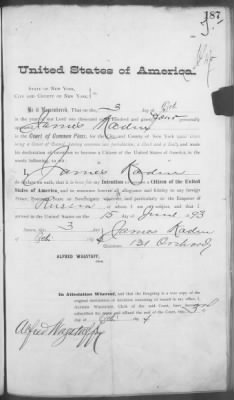 187
United States of America.
STATE OF NEW YORK,
CITY AND COUNTY OF NEW YORK,
Be it Remembered, That on the 3 day of Oct
in the year of our Lord one thousand eight hundred and ninety four personally
James Kadin
the Court of Common Pleas, for the City and County of New York
having a Court of Record, having common law jurisdiction, a Clerk and a Seal), and made
his declaration of intention to become a Citizen of the United States of America, in the
words following, to wit:
I, James Kadin
do declare on oath, that it is bona fide my Intention to become a Citizen of the United
States of America, and to renounce forever all allegiance and fidelity to any foreign
Prince, Potentate, State or Sovereignty whatever, and particularly to the Emperor of
Russia of whom I am a subject, and that I
arrived in the United States on the 15 day of June 93
Sworn, this 3
day of Oct 4
James Kadin
131 Orchard
ALFRED WAGSTAFF,
Clerk.
In Attestation Whereof, and that the foregoing is a true copy of the
original declaration of intention remaining of record in my office, I
ALFRED WAGSTAFF, Clerk of the said Court, have hereunto
subscribed my name and affixed the seal of the Court, this 3rd
day of Oct 4
Alfred Wagstaff